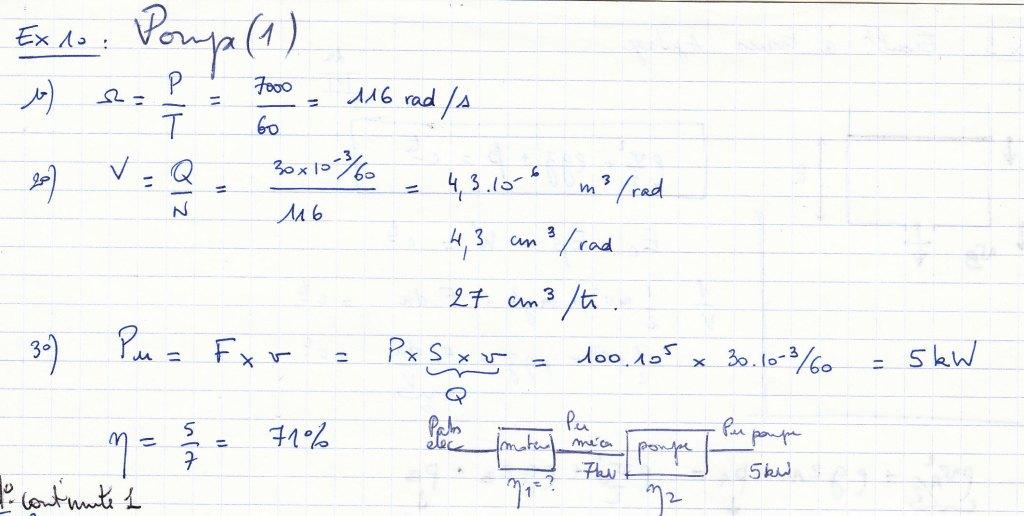 Ex 10 : Pompe (1)
1°) Ω = P/T = 7000/60 = 116 rad/s
2°) V = Q/N = 30×10⁻³/60 / 116 = 4,3.10⁻⁶ m³/rad
4,3 cm³/rad
27 cm³/tr.
3°) Pu = F × v = P × S × v = 100.10⁵ × 30.10⁻³/60 = 5 kW
Q
η = 5/7 = 71%
Pabs elec moteur Pu méca 7kW pompe Pu pompe 5kW
η₁ = ? η₂
continuité 1